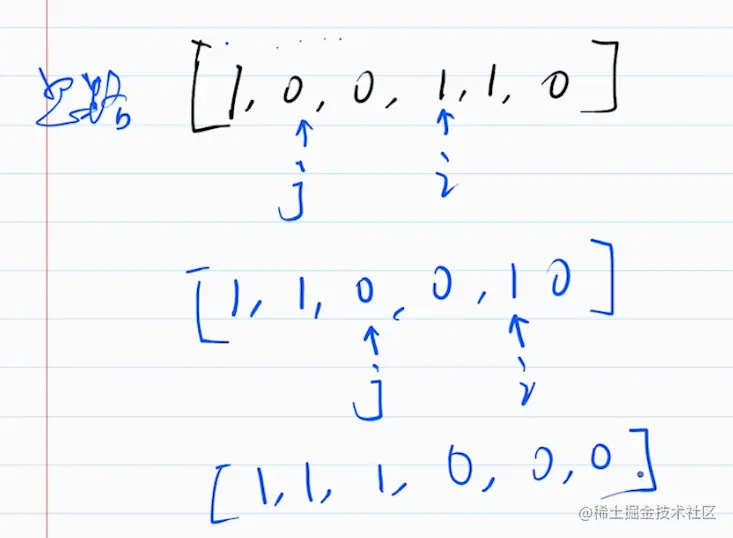 思路 [1, 0, 0, 1, 1, 0]
j i
[1, 1, 0, 0, 1 0]
j i
[1, 1, 1, 0, 0, 0]
@稀土掘金技术社区